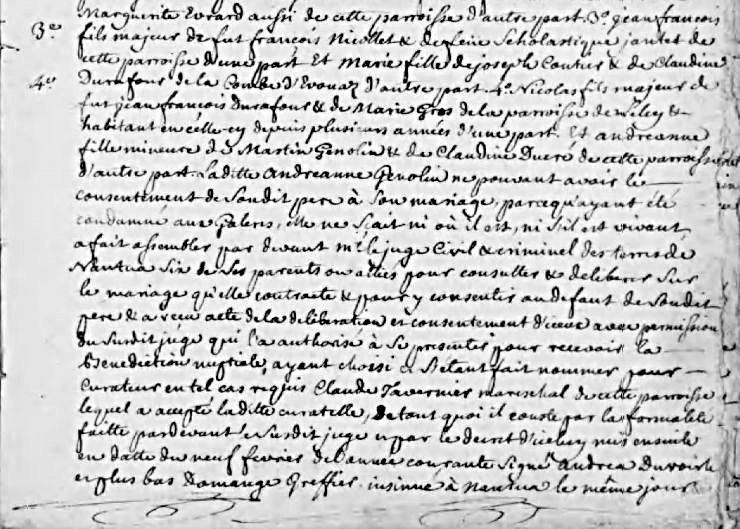 Marguerite Evrard aussi de cette parroisse d'autre part. 3.o jean francois
3.e fils majeur de fut francois Nicollet & de Scholastique jantet de
cette parroisse d'une part Et Marie fille de joseph Coutier & de Claudine
4.e Durafour de la Combe d'Evouaz d'autre part. 4.o Nicolas fils majeur de
fut jean francois Durafour & de Marie Gros de la parroisse de &
habitant en celle-cy depuis plusieurs années d'une part. Et andréanne
fille mineure de Martin Genolin & de Claudine Ducré de cette parroisse
d'autre part. Laditte Andréanne Genolin ne pouvant avoir le
consentement de Soudit pere à Son mariage, parcequ'ayant été
condamné aux Galeres, elle ne Scait ni où il est, ni S'il est vivant
a fait assembler par devant mr. le juge Civil & criminel des terres de
Nantua Six de Ses parents ou alliés pour consulter & deliberer Sur
le mariage qu'elle contracte & pour y consentir au defaut de Soudit
pere & a recu acte de la deliberation et consentement d'iceux avec permission
du Susdit juge qui l'a authorisé à Se presenter pour recevoir la
Benediction nuptiale, ayant choisi et S'etant fait nommer pour
Curateur en tel cas requis Claude Tavernier mareschal de cette parroisse
lequel a accepté laditte curatelle, de tout quoi il conste par la formalité
faitte pardevant le Susdit juge et par le decret d'iceluy mis ensuite
en datte du neuf fevrier de l'année courante Signé andrea
et plus bas Domange Greffier. insinué à Nantua le même jour